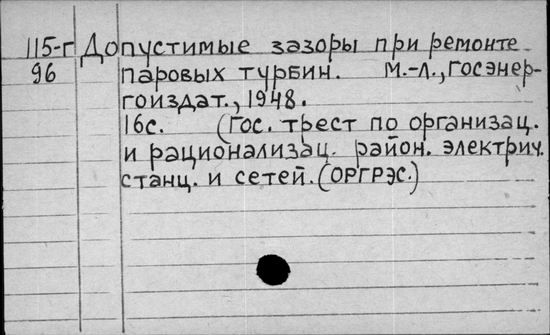 115-г Допустимые зазоры при ремонте
96 паровых турбин. М.-Л., Госэнер-
гоиздат., 1948.
16с. (Гос. трест по организац.
и рационализац. район. электрич.
станц. и сетей. (ОРГРЭС.)